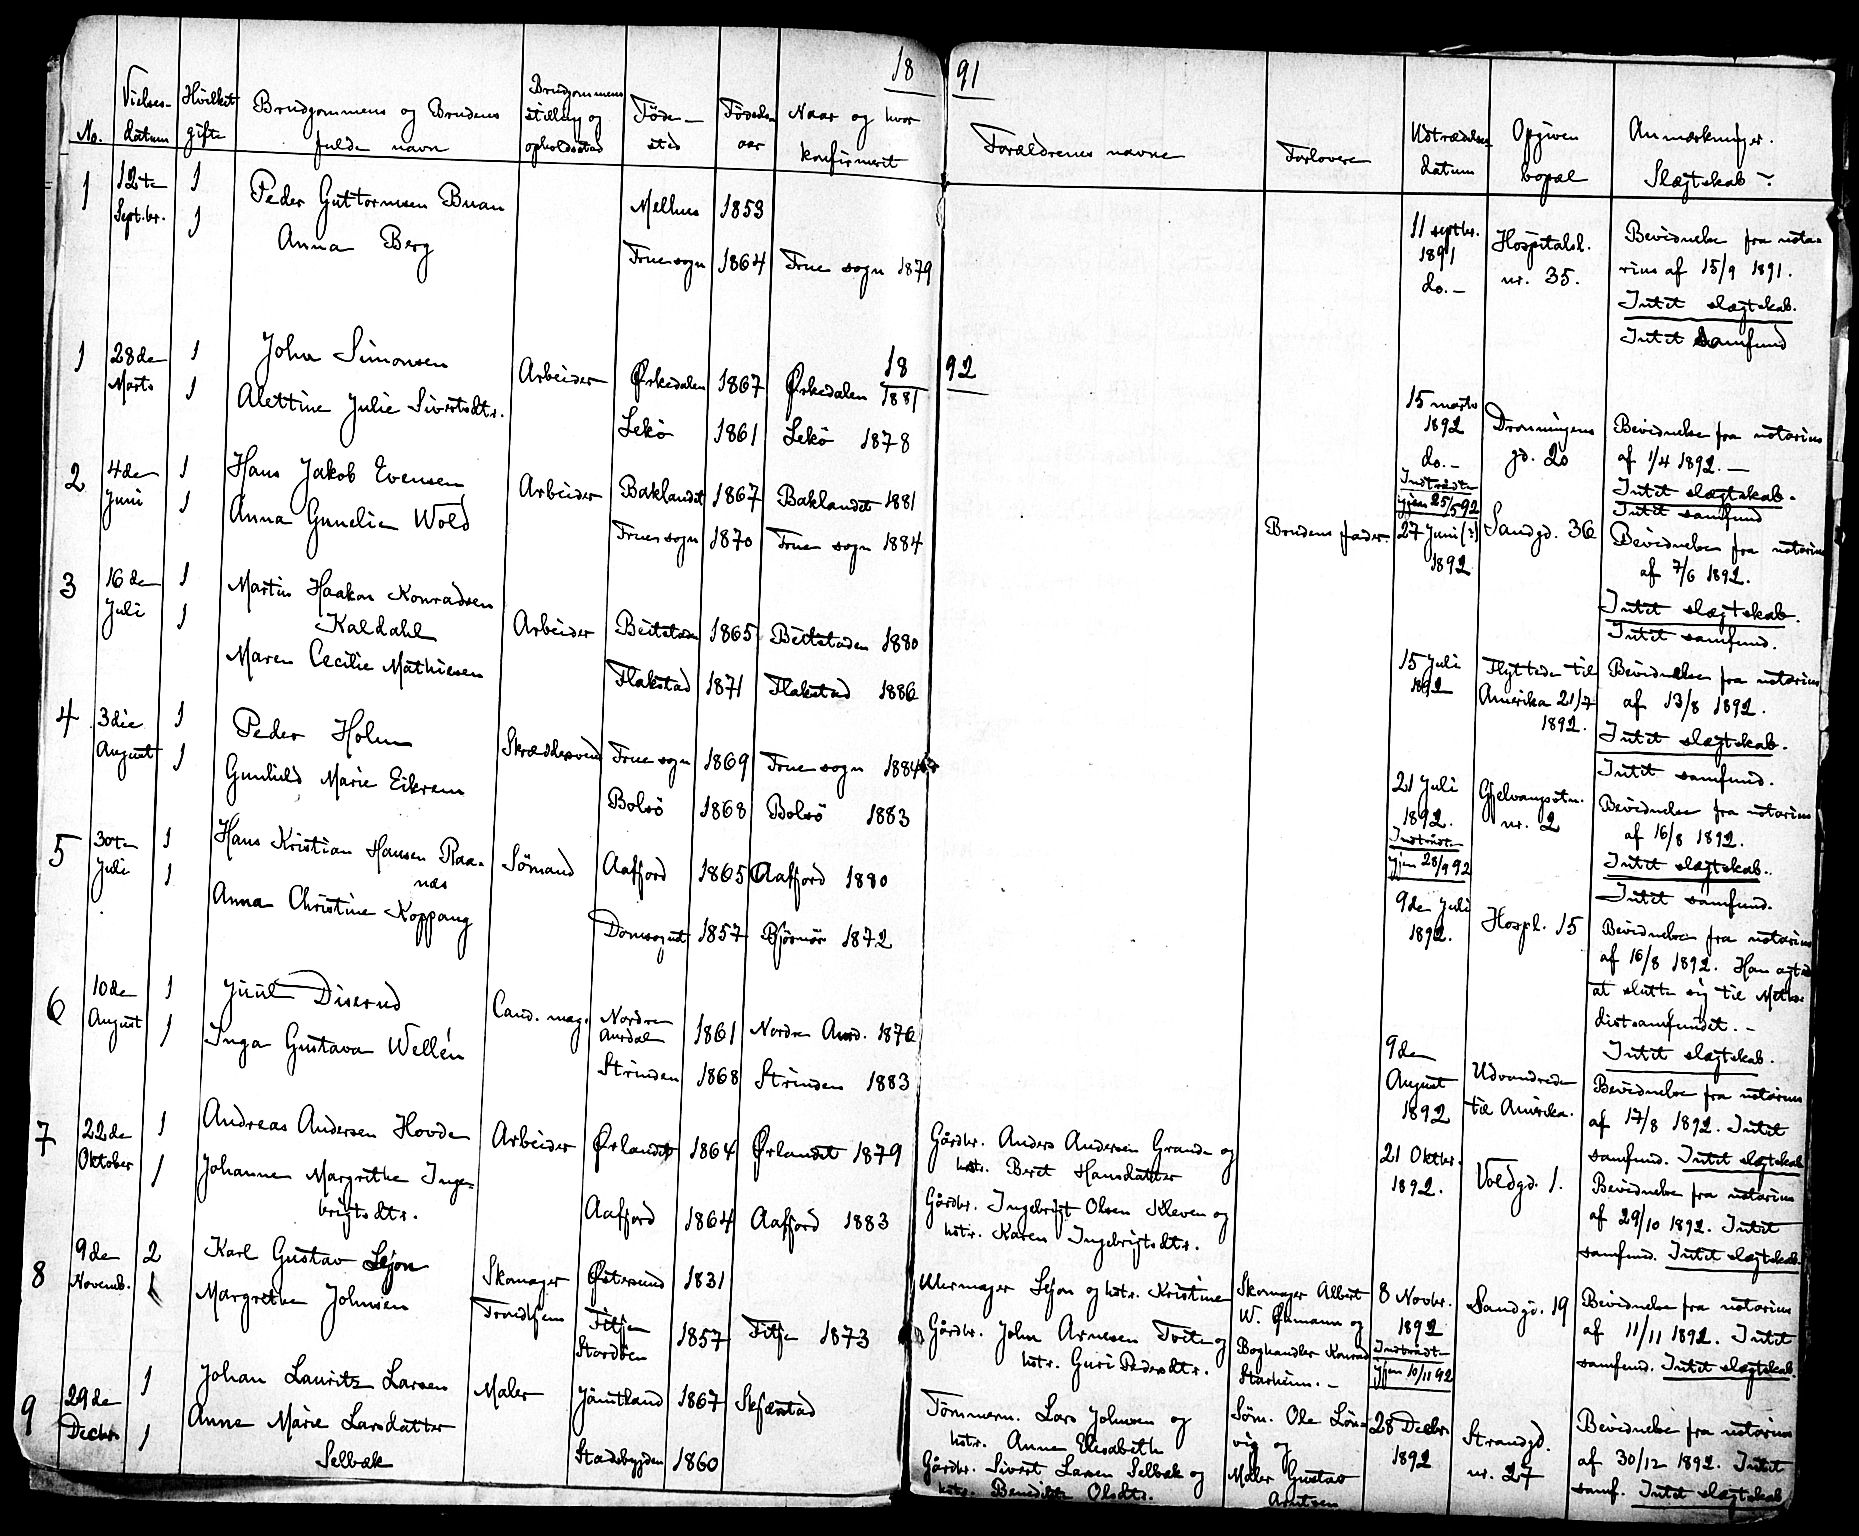 18 91
No. Vielses-datum Hvilket gifte Brudgommens og Brudens fulde navn Brudgommens stilling og opholdssted Føde-sted Fødsels-aar Naar og hvor konfirmeret Forældrenes navne Forlovere Udtrædelses datum Opgiven bopæl Anmærkninger. Slægtskab?
1 12te Septbr. 1 Peder Guttormsen Buan Melhus 1853
1 Anna Berg Frue sogn 1864 Frue sogn 1879
11 septbr. 1891 do.- Hospitalsl. nr. 35.
Bevidnelse fra nota-
rius af 15/9 1891.
Intet slægtskab.
Intet samfund
18 92
1 28de Marts 1 John Simonsen Arbeider Ørkedalen 1867 Ørkedalen 1881
1 Alettine Julie Sivertsdtr. Lekö 1861 Lekö 1878
15 marts 1892 do.- Dronningens gd. 20
Bevidnelse fra notarius
af 1/4 1892. —
Intet slægtskab.
Intet samfund
2 4de Juni 1 Hans Jakob Evensen Arbeider Baklandet 1867 Baklandet 1881
1 Anna Gunelia Wold Frue sogn 1870 Frue sogn 1884
Brudens fader.
Indtrådte igjen 25/5 92
27 Juni (?) 1892 Sandgd. 36
Bevidnelse fra notarius
af 7/6 1892.
Intet slægtskab.
Intet samfund.
3 16de Juli 1 Martin Haakon Konradsen
Kaldahl Arbeider Beitstaden 1865 Beitstaden 1880
1 Maren Cecilie Mathiesen Flakstad 1871 Flakstad 1886
15 Juli 1892 Flyttede til Amerika 21/7 1892.
Bevidnelse fra notarius
af 13/8 1892.
Intet slægtskab.
Intet samfund.
4 3die August 1 Peder Holm Skræddersvend Frue sogn 1869 Frue sogn 1884
1 Gunhild Marie Eikrem Bolsö 1868 Bolsö 1883
21 Juli 1892. Gjelvangsvtn. nr. 2
Indtrådte igjen 28/9 92
Bevidnelse fra notarius
af 16/8 1892.
Intet slægtskab.
Intet samfund.
5 30te Juli 1 Hans Kristian Hansen Raa-
næs Sömand Aafjord 1865 Aafjord 1880
1 Anna Christine Koppang Domsognet 1857 Bjørnör 1872
9de Juli 1892. Hospl. 15
Bevidnelse fra notarius
af 16/8 1892. Han agted
at slutte sig til Metho-
distsamfundet. -
Intet slægtskab.
6 10de August 1 Juul Diserud Cand. mag. Nordre Aurdal 1861 Nordre Aurd. 1876
1 Inga Gustava Wellén Strinden 1868 Strinden 1883
9de August 1892 Udvandrede til Amerika.
Bevidnelse fra notarius
af 17/8 1892. Intet
samfund. Intet slægtskab
7 22de Oktober 1 Andreas Andersen Hovde Arbeider Ørlandet 1864 Ørlandet 1879
1 Johanne Margrethe Inge-
brigtsdtr. Aafjord 1864 Aafjord 1883
Gårdbr. Anders Andersen Grande og
hstr. Beret Hansdatter
Gårdbr. Ingebrigt Olsen Kleven og
hstr. Karen Ingebrigtsdtr.
21 Oktbr. 1892. Voldgd. 1.
Bevidnelse fra notarius
af 29/10 1892. Intet
samfund. Intet slægtskab
8 9de Novemb. 2 Karl Gustav Lejon Skomager Trondhjem Østersund 1831
1 Margrethe Johnsen Fitje Stordöen 1857 Fitje 1873
Uhrmager Lejon og hstr. Kristine
Gårdbr. John Arnesen Tvite og
hstr. Guri Pedersdtr.
Skomager Albert
W. Øhmann og
Boghandler Konrad
Starheim. -
8 Novbr. 1892
Indtrådte igjen 10/11 92
Sandgd. 19
Bevidnelse fra notarius
af 11/11 1892. Intet
samfund. Intet slægtskab.
9 29de Decbr. 1 Johan Lauritz Larsen Maler Jämtland 1867 Skjærstad
1 Anne Marie Larsdatter
Selbæk Stadsbygden 1860
Tömmerm. Lars Johnsen og
hstr. Anne Elisabeth
Gårdbr. Sivert Larsen Selbæk og
hstr. Benedikte Olsdtr.
Söm. Ole Lön-
vig og
Maler Gustav
Arntsen
28 Decbr. 1892 Strandgd. nr. 27
Bevidnelse fra notarius
af 30/12 1892. Intet
samf. Intet slægtskab